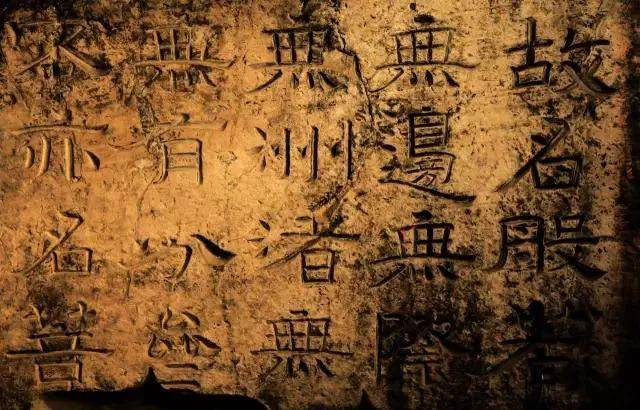 故名般
無邊無際
無洲渚無
無有
亦名菩